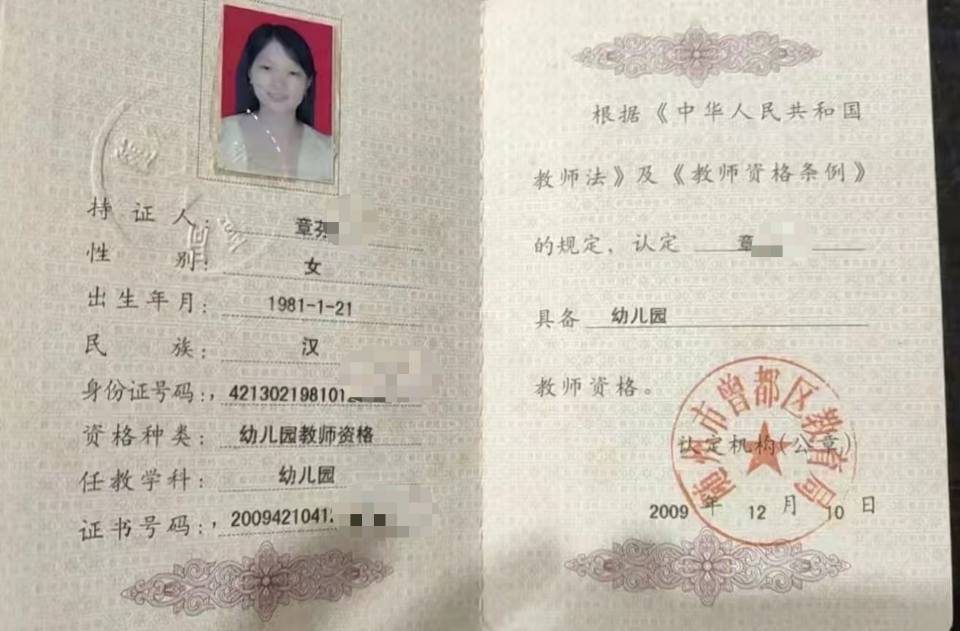 持证人: 章
性别: 女
出生年月: 1981-1-21
民族: 汉
身份证号码: 421302198101
资格种类: 幼儿园教师资格
任教学科: 幼儿园
证书号码: 2009421041
根据《中华人民共和国
教师法》及《教师资格条例》
的规定, 认定 章
具备 幼儿园
教师资格。
随州市曾都区教育局
认定机构(公章)
2009 年 12 月 10 日